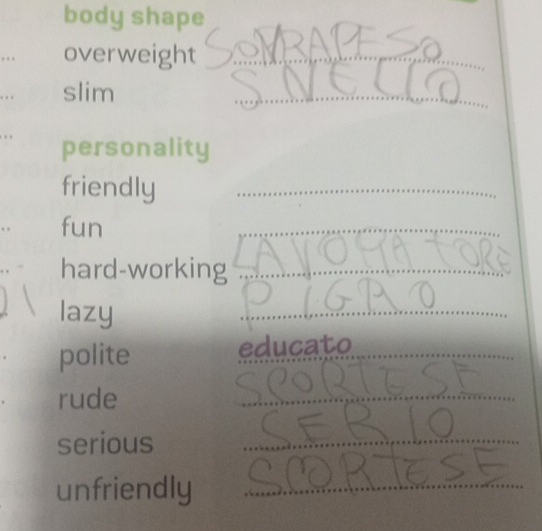 body shape
overweight SOVRAPESO
slim SNELLO
personality
friendly
fun
hard-working LAVORATORE
lazy PIGRO
polite educato
rude SCORTESE
serious SERIO
unfriendly SCORTESE